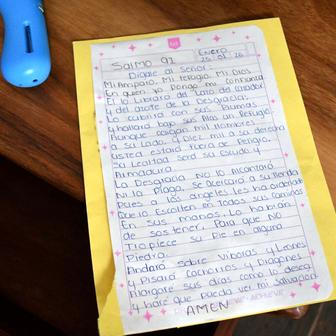 Salmo 91
Enero
25-01-26
Digale al Señor:
Mi Amparo, Mi refugio, Mi Dios
En quien yo Pongo mi confianza
El lo Librara del Lazo del cazador
y del azote de la Desgracia.
Lo cubrira con sus Plumas
y hallara bajo sus Alas un Refugio
Aunque caigan mil hombres
a su Lado y Diez mil a su derecha
usted estará fuera de Peligro.
su Lealtad será su Escudo y
Armadura
La Desgracia No lo Alcanzará
Ni la Plaga, se Acercará a su tienda
Pues a los angeles les ha ordenado
Que lo Escolten en Todos sus caminos
En sus manos Lo habrán
de sostener, Para que NO
Tropiece su Pie en alguna
Piedra.
Andará sobre Viboras y Leones
y Pisará cachorros y Dragones
Alargare sus dias como lo desea
y haré que pueda ver mi salvación
AMEN